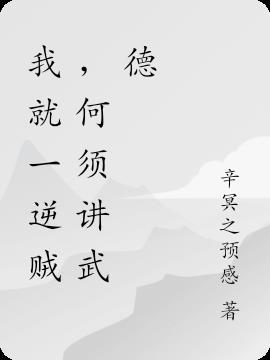 我就一逆贼
，何须讲武
德
辛冥之预感 著